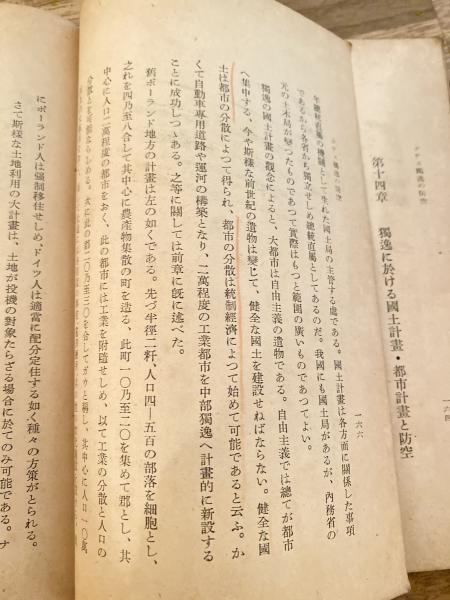 ナチス獨逸の防空
一六四
第十四章　獨逸に於ける國土計畫・都市計畫と防空
ナチス獨逸の防空
一六六
年總統直屬の機關として生れた國土局の主管する處である。國土計畫は各方面に關係した事項
であるから各省から獨立せしめ總統直屬としてあるのだ。我國にも國土局があるが、內務省の
元の土木局が變つたものであつて實際はもつと範圍の廣いものであつてよい。
獨逸の國土計畫の觀念によると、大都市は自由主義の遺物である。自由主義では總てが都市
へ集中する、今や斯樣な前世紀の遺物は變じて、健全な國土を建設せねばならない。健全な國
土は都市の分散によつて得られ、都市の分散は統制經濟によつて始めて可能であると云ふ。か
くて自動車專用道路や運河の構築となり、二萬程度の工業都市を中部獨逸へ計畫的に新設する
ことに成功しつゝある。之等に關しては前章に既に述べた。
舊ポーランド地方の計畫は左の如くである。先づ半徑二粁、人口四―五百の部落を細胞とし、
之れを四乃至八合して其中心に農產物集散の町を造る、此町一〇乃至二〇を集めて郡とし、其
中心に人口二萬程度の都市をおく、此の都市には工業を附隨せしめ、以て工業の分散と人口の
分散とを可能ならしめる。次に此の郡二〇乃至三〇を合してガウと稱し、其中心に人口一〇萬
にポーランド人は强制移住せしめ、ドイツ人は適當に配分定住する如く種々の方策がとられる。
さて斯樣な土地利用の大計畫は、土地が投機の對象たらざる場合に於てのみ可能である。ナ